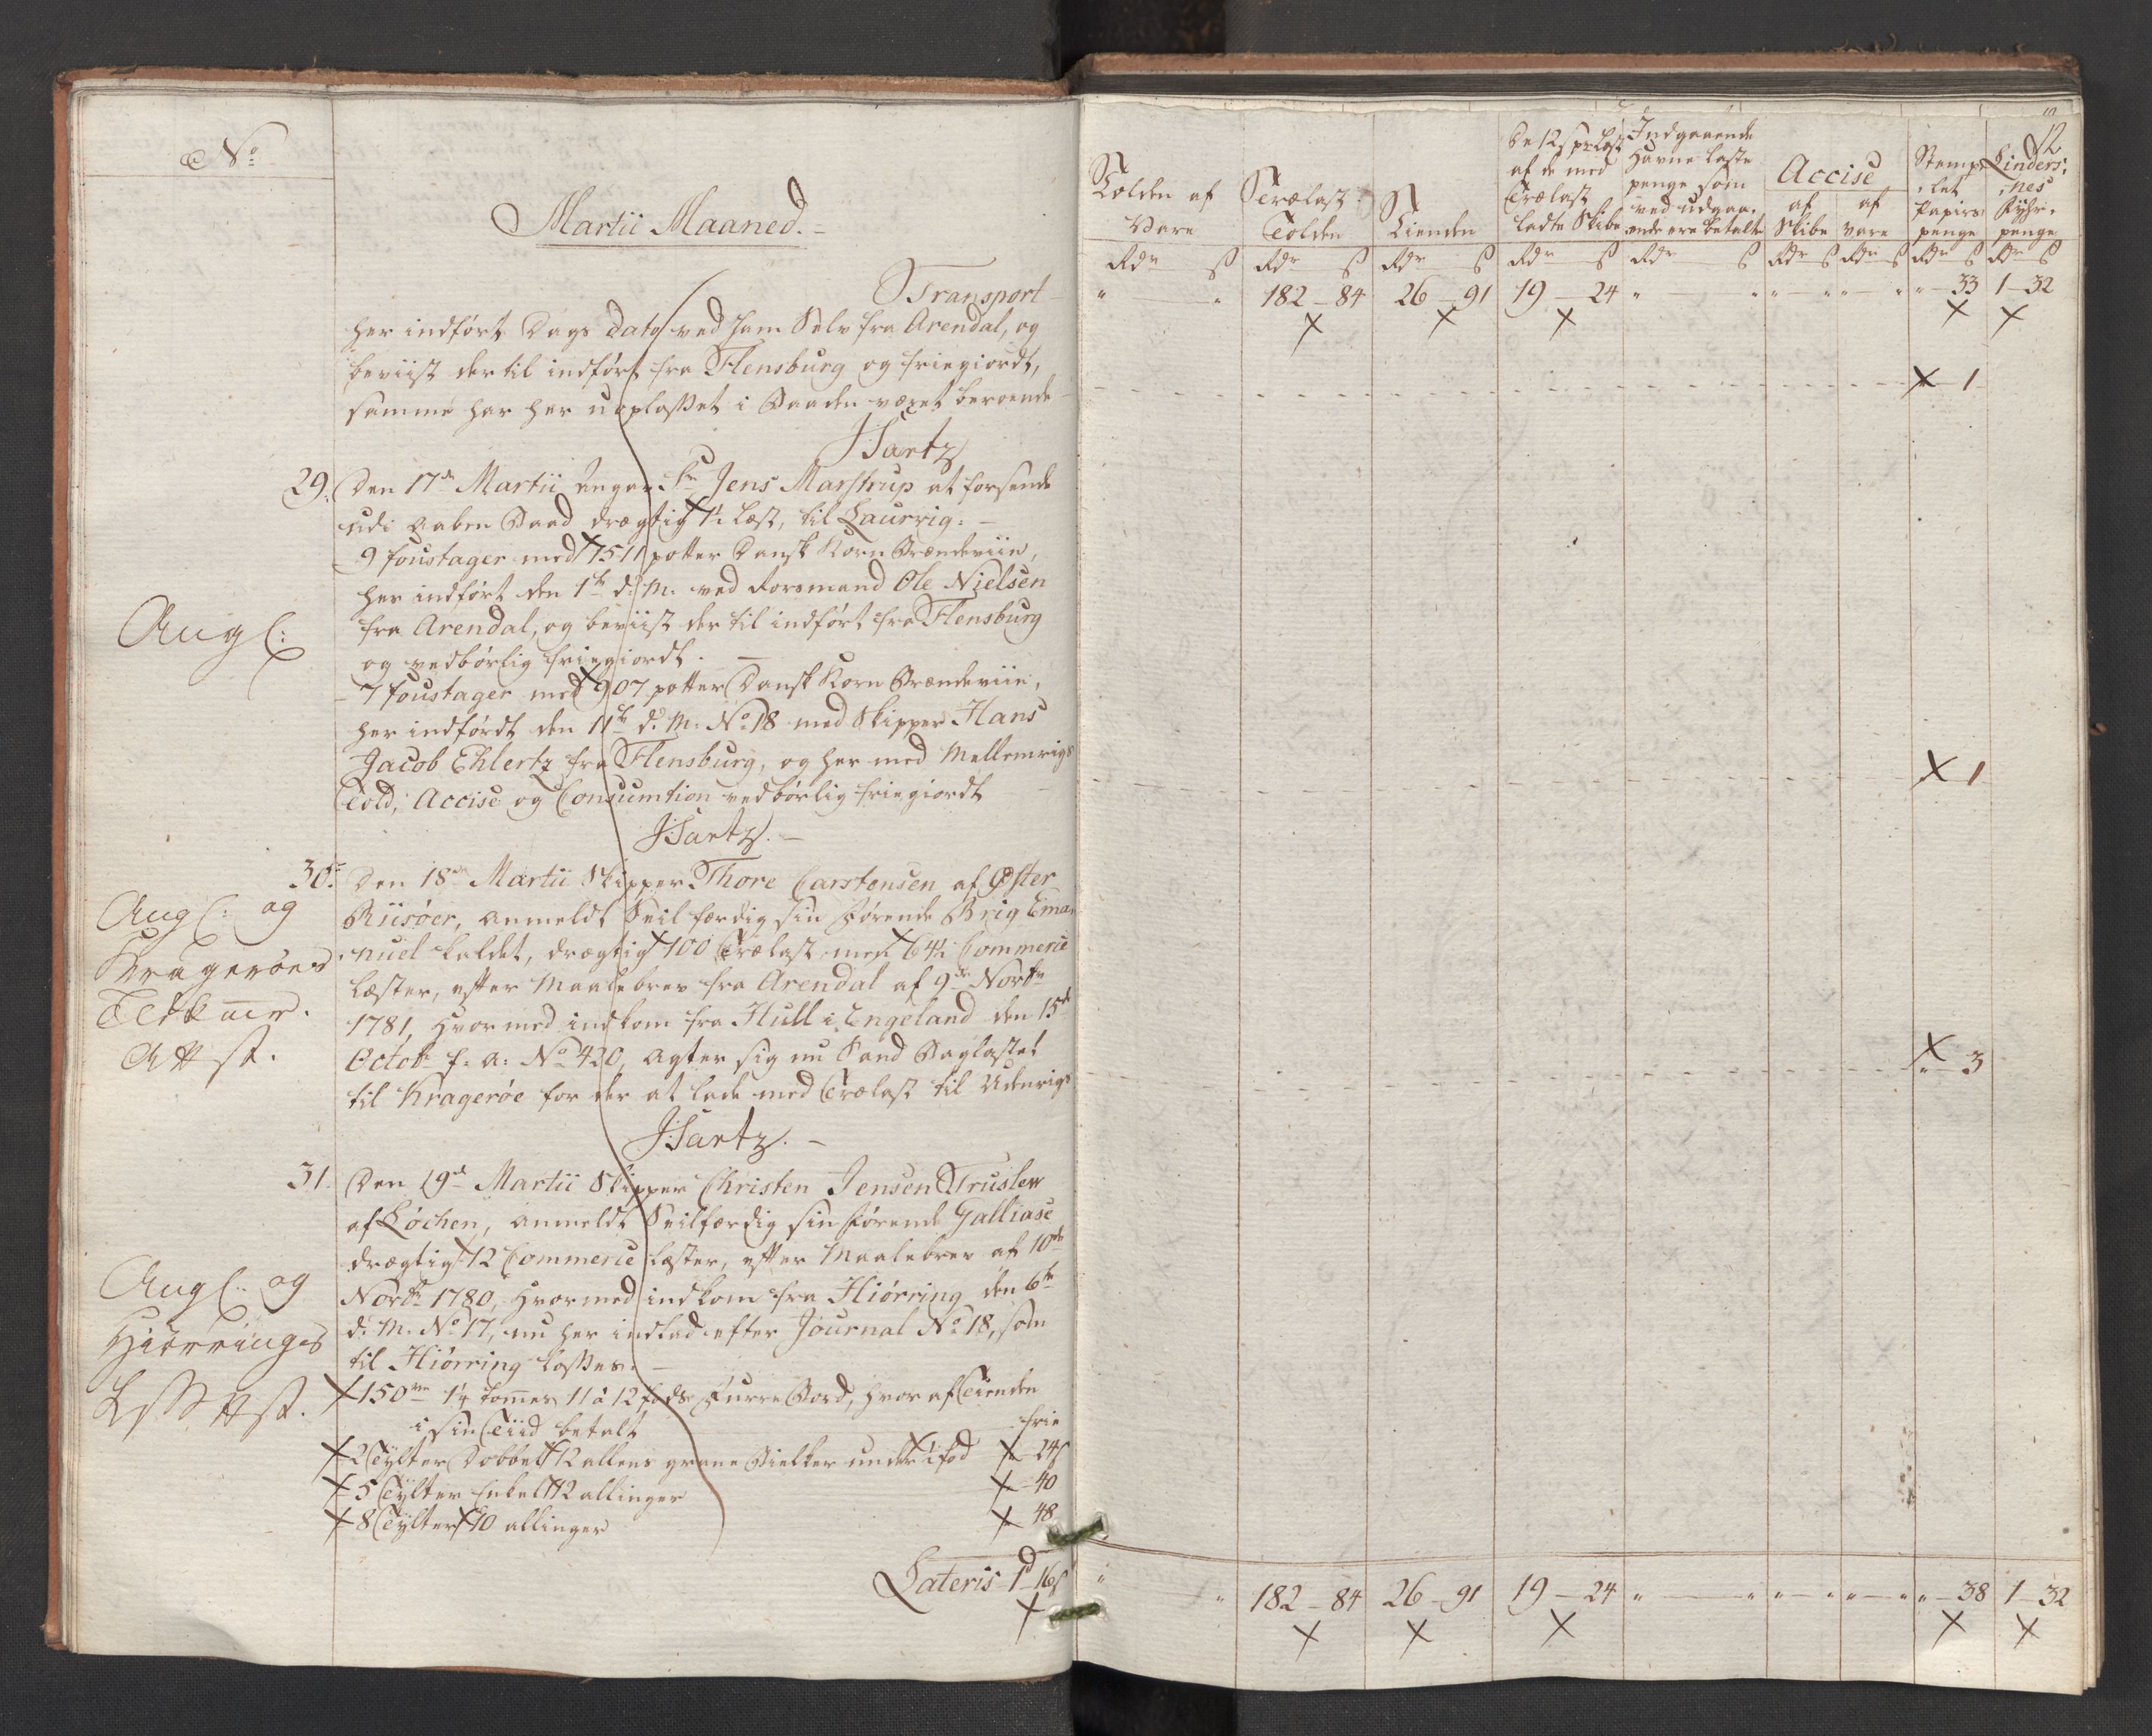 No
Martii Maaned.
Transport
her indført Dags dato ved ham Selv fra Arendal, og
beviist der til indført fra Flensburg og friegiordt,
samme har her uoplosset i Baaden været beroende
JSartz
29. Den 17de Martii Angav Sr Jens Marstrup at forsende
udi aaben Baad drægtig 1½ læst, til Laurvig. –
9 foustager med 1511 potter Dansk Korn Brændeviin,
her indført den 1te d. M. ved Formand Ole Nielsen
Angl:
fra Arendal, og beviist der til indført fra Flensburg
og vedbørlig friegiordt. –
7 foustager med 907 potter Dansk Korn Brændeviin,
her indførdt den 11te d. M. No 18 med Skipper Hans
Jacob Ehlertz fra Flensburg, og her med Mellemrigs
Told, Accise og Consumtion vedbørlig friegiordt
JSartz. –
30. Den 18de Martii Skipper Thore Carstensen af Øster
Angl: og
Riisøer, anmeldt Seilfærdig sin førende Brig Ema-
Kragerøes
nuel kaldet, drægtig 100 Trælast, men 64½ Commerce
læster, efter Maalebrev fra Arendal af 9de Novbr
1781, hvormed indkom fra Hull i Engeland den 15de
Attst.
Octobr f: a: No 420, agter sig nu Sand Baglastet
til Kragerøe for der at lade med Trælast til Udenrigs
JSartz. –
31. Den 19de Martii Skipper Christen Jensen Truslew
af Løchen, anmeldt Seilfærdig sin førende Galliase
drægtig 12 Commerce læster, efter Maalebrev af 10de
Angl: og
Novbr 1780, hvormed indkom fra Hiørring den 6te
Hiørringes
d. M. No 17, nu her indlad efter Journal No 18, som
til Hiørring losses. –
Attst.
150 1¼ tommes 11 à 12 fods Furre Bord, hvoraf Tienden
i sin Tiid betalt frie
2 Tylter Dobbelt 12 allens grane Bielker under 1 fod – 24s
5 Tylter Enkelt 12 allinger – 40
8 Tylter 10 allinger – 48
Lateris 1d – 16s
12
Tolden af Vare
Trælast Tolden
Tienden
De 12s pr læst af de med Trælast ladte Skibe
Indgaaende Havne laste penge som ved udgaaende ere betalte
Accise
af Skibe
af Vare
Stemplet Papirs penge
Lindersnes Fyhr penge
Rdr s Rdr s Rdr s Rdr s Rdr s Rdr s Rdr s Rdr s Rdr s
" " 182 – 84 26 – 91 19 – 24 " " " " " " " – 33 1 – 32
1
1
" – 3
" " 182 – 84 26 – 91 19 – 24 " " " " " " " – 38 1 – 32